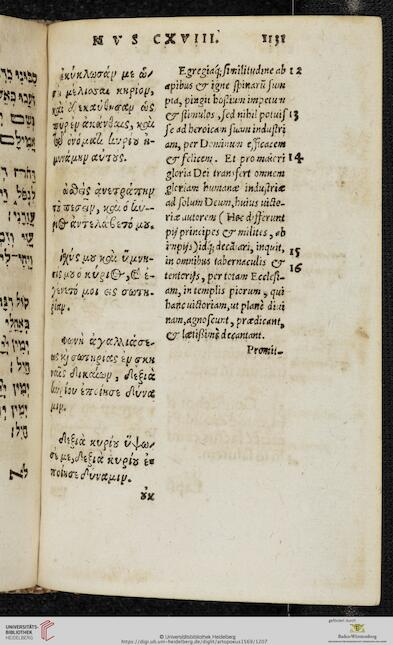 NVS CXVIII.
ἐκύκλωσάν με ὡ-
μέλισσαι κηρίον,
ἐξεκαύθησαν ὡς
πῦρ ἐν ἀκάνθαις, καὶ
ὀνόματι κυρίου ἠ-
μυνάμην αὐτούς.
ὠσθεὶς ἀνετράπην
τοῦ πεσεῖν, καὶ ὁ κύ-
ριος ἀντελάβετό μου.
ἰσχύς μου καὶ ὕμνη-
σίς μου ὁ κύριος, καὶ ἐ-
γένετό μοι εἰς σωτη-
ρίαν.
φωνὴ ἀγαλλιάσε-
ως καὶ σωτηρίας ἐν σκη-
ναῖς δικαίων, δεξιὰ
κυρίου ἐποίησε δύνα-
μιν.
δεξιὰ κυρίου ὕψω-
σέ με, δεξιὰ κυρίου ἐ-
ποίησε δύναμιν.
οὐκ
Egregiaq́; similitudine ab 12
apibus & igne spinarū sum
pta, pingit hostium impetum
& stimulos, sed nihil potuisse 13
se ad heroicam suam industri
am, per Dominum efficacem
& felicem. Et pro maiori 14
gloria Dei transfert omnem
gloriam humanæ industriæ
ad solum Deum, huius victo-
riæ autorem (Hoc differunt
pij principes & milites, ab
impijs) idq́; declarari, inquit, 15
in omnibus tabernaculis & 16
tentorijs, per totam Ecclesi-
am, in templis piorum, qui
hanc victoriam, ut planè divi
nam, agnoscunt, prædicant,
& lætissimè decantant.
Promit-
UNIVERSITÄTS-
BIBLIOTHEK
HEIDELBERG
© Universitätsbibliothek Heidelberg
https://digi.ub.uni-heidelberg.de/diglit/artopoeus1569/1207
gefördert durch
Baden-Württemberg